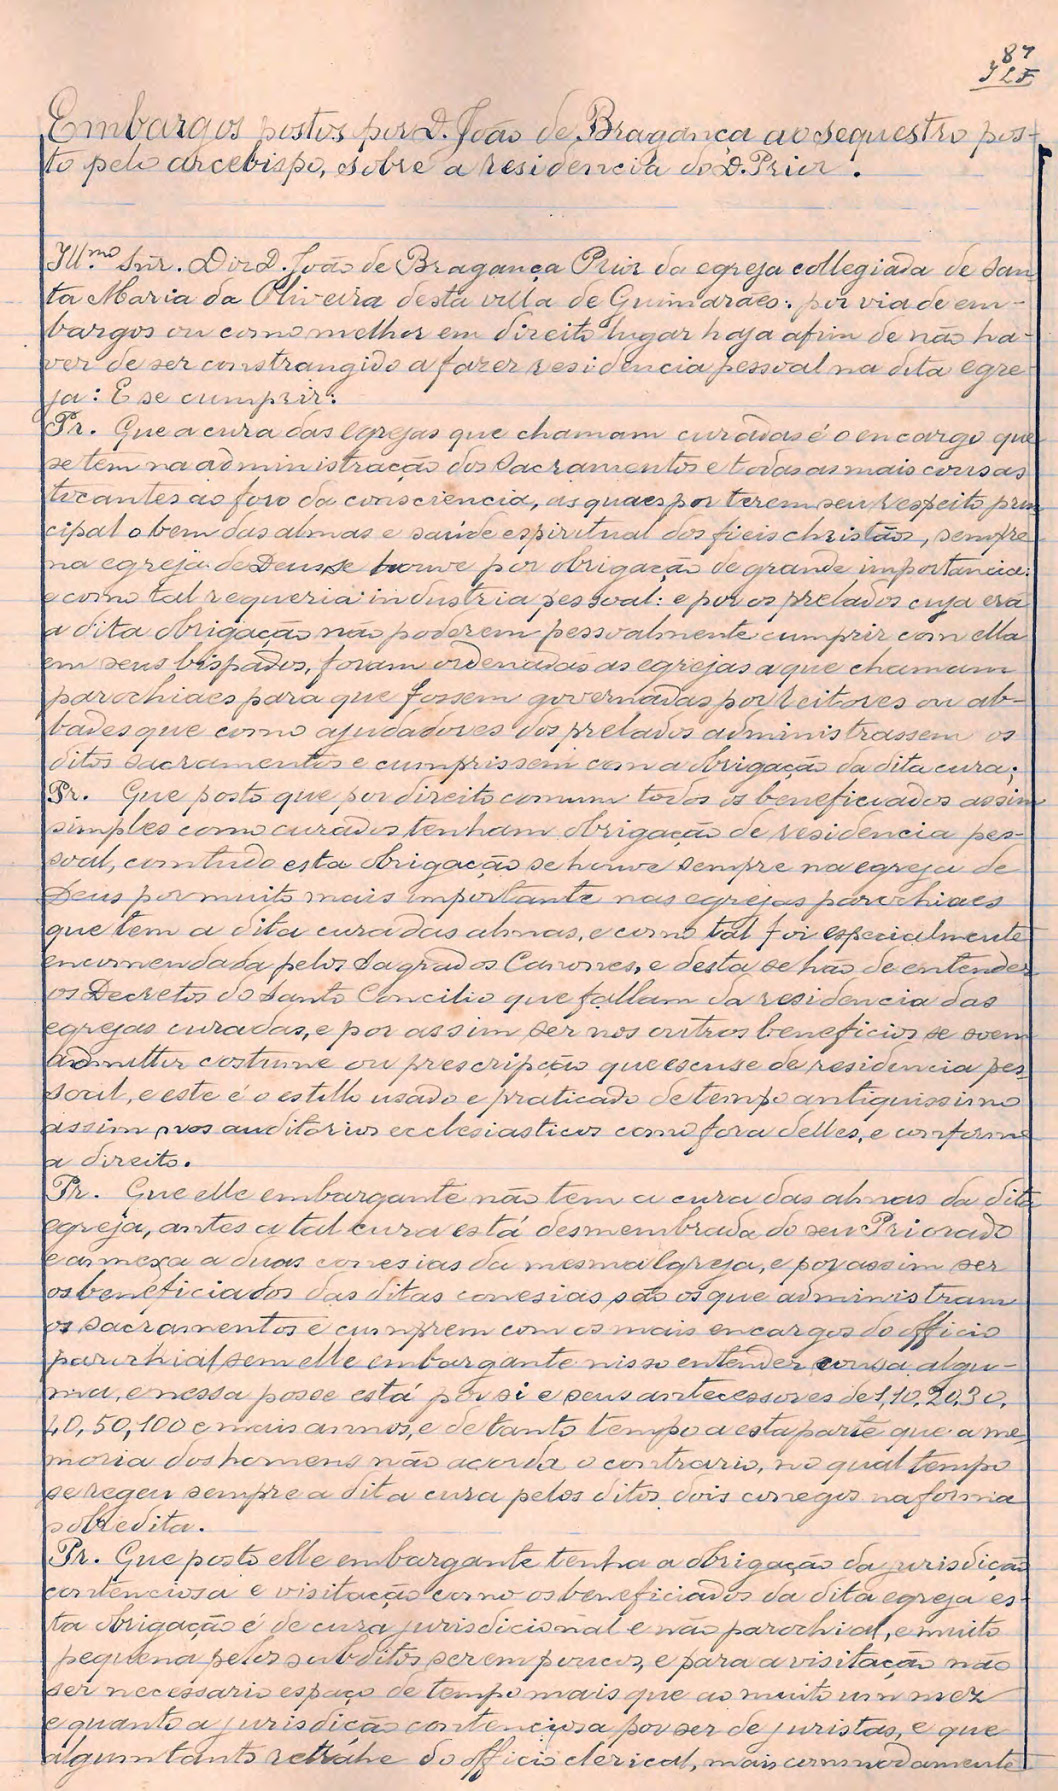 87
JLF
Embargos postos por D. João de Bragança ao sequestro pos-
to pelo arcebispo, sobre a residencia do D. Prior.
Ill.mo Snr. Diz D. João de Bragança Prior da egreja collegiada de San
ta Maria da Oliveira desta villa de Guimarães: por via de em-
bargos ou como melhor em direito lugar haja afim de não ha-
ver de ser constrangido a fazer residencia pessoal na dita egre-
ja: E se cumprir:
Pr. Que a cura das Egrejas que chamam curadas é o encargo que
se tem na administração dos Sacramentos e todas as mais cousas
tocantes ao foro da consciencia, as quaes por terem seu respeito prin
cipal o bem das almas e saúde espiritual dos fieis christãos, sempre
na egreja de Deus se houve por obrigação de grande importancia:
e como tal requeria industria pessoal: e por os prelados cuja era
a dita obrigação não poderem pessoalmente cumprir com ella
em seus bispados, foram ordenadas as egrejas a que chamam
parochiaes para que fossem governadas por reitores ou ab-
bades que como ajudadores dos prelados administrassem os
ditos sacramentos e cumprissem com a obrigação da dita cura;
Pr. Que posto que por direito comum todos os beneficiados assim
simples como curados tenham obrigação de residencia pes-
soal, comtudo esta obrigação se houve sempre na egreja de
Deus por muito mais importante nas egrejas parochiaes
que tem a dita cura das almas, e como tal foi especialmente
encomendada pelos Sagrados Canones, e desta se hão de entender
os Decretos do Santo Concilio que fallam da residencia das
egrejas curadas, e por assim ser nos outros beneficios se soem
admittir costume ou prescripção que escuse de residencia pes
soal, e este é o estillo usado e praticado de tempo antiquissimo
assim nos auditorios ecclesiasticos como fora delles, e conforme
a direito.
Pr. Que elle embargante não tem a cura das almas da dita
egreja, antes a tal cura está desmembrada do seu Priorado
e annexa a duas conesias da mesma Egreja, e por assim ser
os beneficiados das ditas conesias são os que administram
os sacramentos e cumprem com os mais encargos do officio
parochial sem elle embargante nisso entender cousa algu-
ma, e nessa posse está por si e seus antecessores de 1, 10, 20, 30,
40, 50, 100 e mais annos, e de tanto tempo a esta parte que a me
moria dos homens não acorda o contrario, no qual tempo
se regeu sempre a dita cura pelos ditos dois conegos na forma
sobredita.
Pr. Que posto elle embargante tenha a obrigação da jurisdição
contenciosa e visitação como os beneficiados da dita egreja es-
ta obrigação é de cura jurisdicional e não parochial, e muito
pequena pelos subditos serem poucos, e para a visitação não
ser necessario espaço de tempo mais que ao muito um mez
e quanto a jurisdição contenciosa por ser de juristas, e que
algum tanto retrahe do officio clerical, mais commodamente